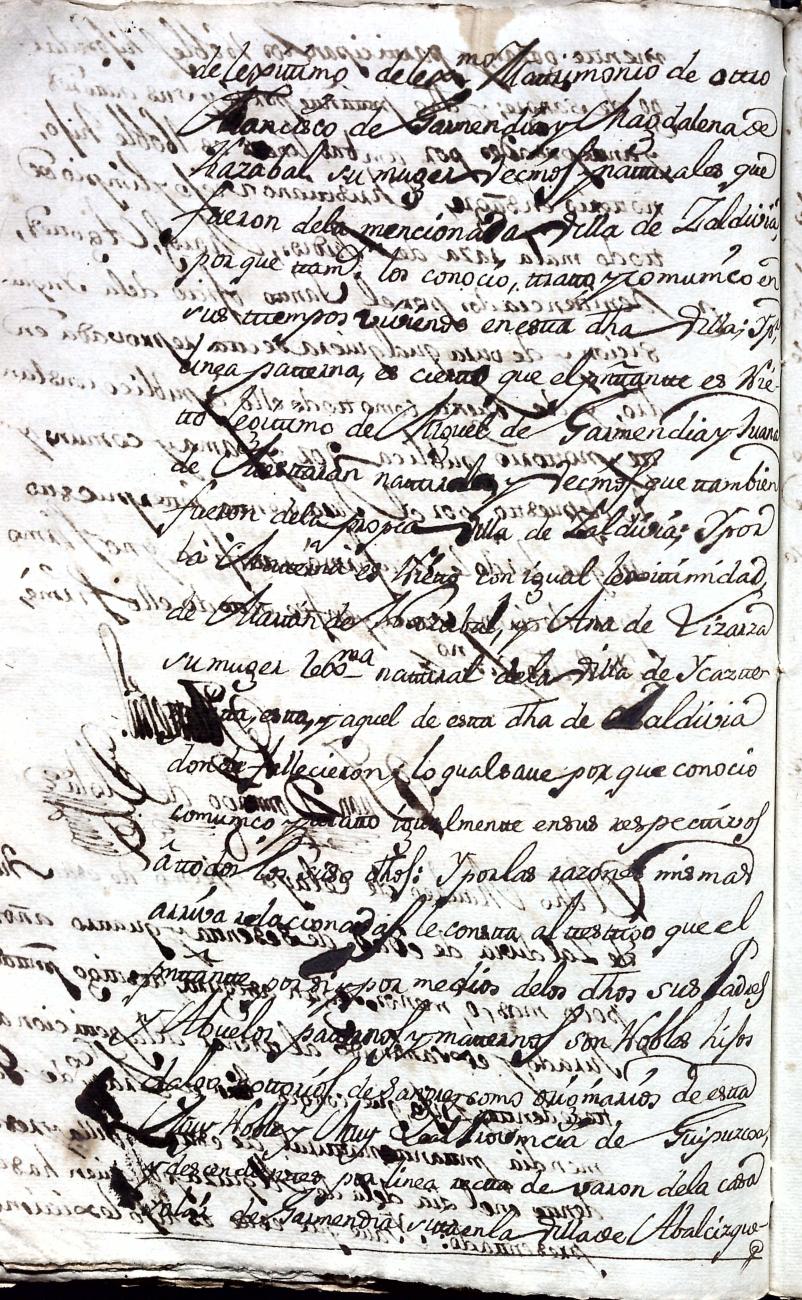 de lexitimo de lexmo Matrimonio de otro
Francisco de Garmendia y Magdalena de
Yrazabal su muger vecinos y naturales que
fueron dela mencionada Villa de Zaldivia,
porque tamn. los conoció, trato y comunico en
sus tiempos viviendo en esta dha Villa; Ypr
linea paterna, es cierto que el presentante es Nie-
tto Lexitimo de Miguel de Garmendia y Juana
de naturales y vecinos que tambien
fueron dela propia Villa de Zaldivia; Y por
la Materna es Nieto con igual lexitimidad,
de Martin de Yrazabal, y Ana de Lizarza
su muger lexma natural dela Villa de Ycazte-
esta, y aquel de esta dha de Zaldivia
donde fallecieron; lo qual save por que conocio
comunico y trato igualmente en sus respectivos
a todos los suso dhos: Y por las razones mismas
arriva relacionadas le consta al testigo que el
por si y por medios delos dhos sus Padres
y Abuelos paternos y maternos son Nobles hijos
dalgo notorios de sangre como originarios de esta
Muy Noble y Muy Leal Provincia de Guipuzcoa,
y descendientes por linea recta de varon dela casa
solar de Garmendia sita en la Villa de Abalcizque-